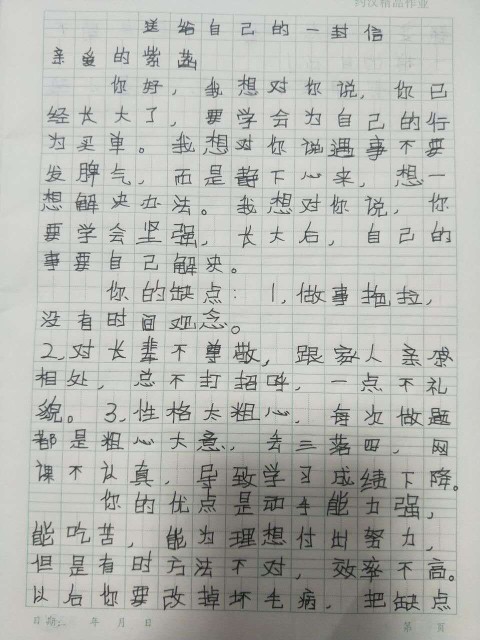 约汉精品作业
送给自己的一封信
亲爱的紫菡
你好，我想对你说，你已
经长大了，要学会为自己的行
为买单。我想对你说遇事不要
发脾气，而是静下心来，想一
想解决办法。我想对你说，你
要学会坚强，长大后，自己的
事要自己解决。
你的缺点：1，做事拖拉，
没有时间观念。
2，对长辈不尊敬，跟家人亲戚
相处，总不打招呼，一点不礼
貌。3，性格太粗心，每次做题
都是粗心大意，丢三落四，网
课不认真，导致学习成绩下降。
你的优点是动手能力强，
能吃苦，能为理想付出努力，
但是有时方法不对，效率不高。
以后你要改掉坏毛病，把缺点
日期： 年 月 日 第 页